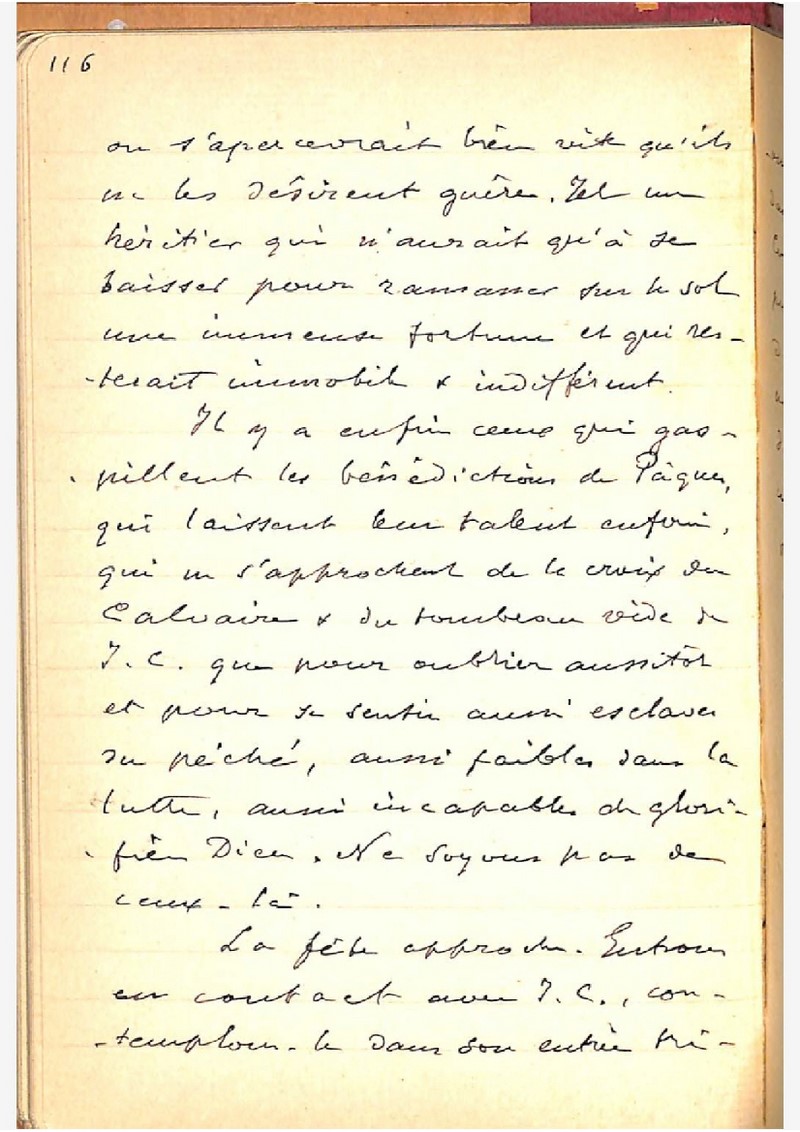 116
on s'apercevrait bien vite qu'ils
ne les désirent guère. Tel un
héritier qui n'aurait qu'à se
baisser pour ramasser sur le sol
une immense fortune et qui res-
-terait immobile & indifférent.
Il y a enfin ceux qui gas-
pillent les bénédictions de Pâques,
qui laissent leur talent enfoui,
qui ne s'approchent de la croix du
Calvaire & du tombeau vide de
J. C. que pour oublier aussitôt
et pour se sentir aussi esclaves
du péché, aussi faibles dans la
lutte, aussi incapables de glori-
fier Dieu. Ne soyons pas de
ceux-là.
La fête approche. Entrons
en contact avec J. C., con-
-templons-le dans son entrée tri-